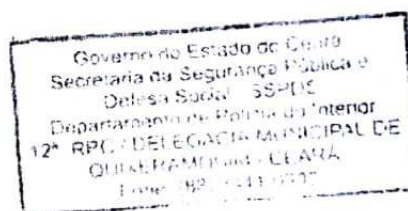 Governo do Estado do Ceará
Secretaria da Segurança Pública e
Defesa Social - SSPDS
Departamento de Polícia do Interior
12ª RPC / DELEGACIA MUNICIPAL DE
QUIXERAMOBIM - CEARÁ
Fone: (88)